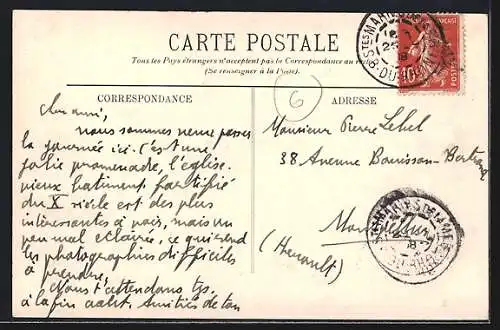 CARTE POSTALE
Tous les Pays étrangers n'acceptent pas la Correspondance au recto
(Se renseigner à la Poste).
CORRESPONDANCE
ADRESSE
6
Cher ami,
nous sommes venus passer
la journée ici. C'est une
jolie promenade, l'église
vieux batiment fortifié
du X siècle est des plus
intéressantes à voir, mais un
peu mal eclairée, ce qui rend
les photographies difficiles
à prendre.
Nous t'attendons tjs.
à la fin août. Amitiés de ton
Monsieur Pierre Lebel
38 Avenue Bouisson-Bertrand
Montpellier
(Herault)
STES MARIES DE LA MER
BOUCHES DU RHONE
POSTES